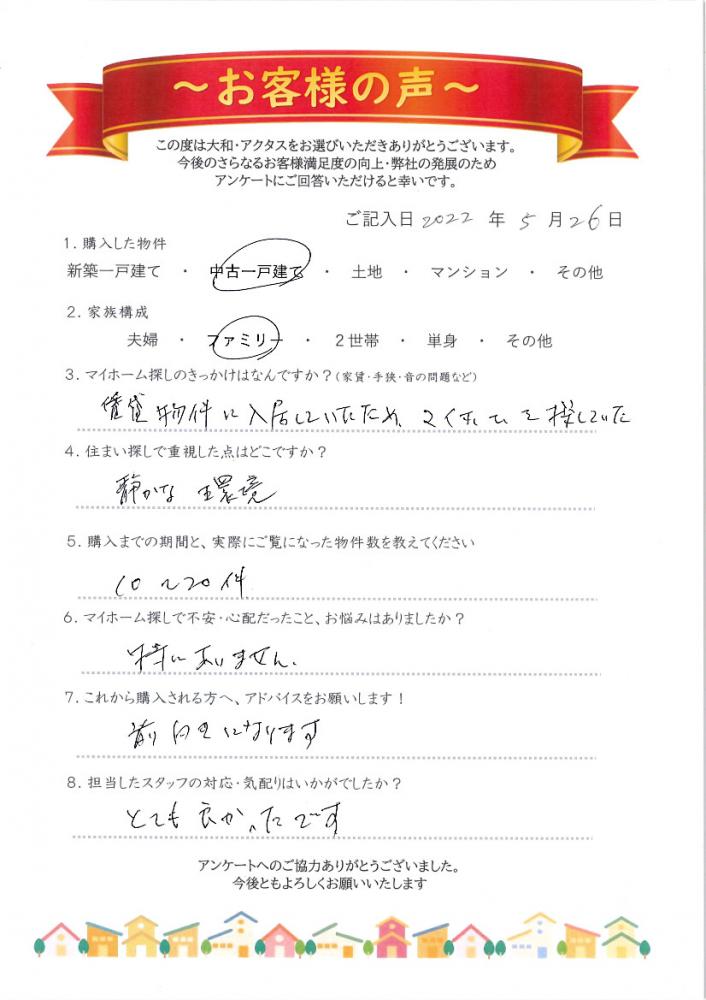 ～お客様の声～
この度は大和・アクタスをお選びいただきありがとうございます。
今後のさらなるお客様満足度の向上・弊社の発展のため
アンケートにご回答いただけると幸いです。
ご記入日 2022 年 5 月 26 日
1. 購入した物件
新築一戸建て ・ 中古一戸建て ・ 土地 ・ マンション ・ その他
2. 家族構成
夫婦 ・ ファミリー ・ 2世帯 ・ 単身 ・ その他
3. マイホーム探しのきっかけはなんですか？(家賃・手狭・音の問題など)
賃貸物件に入居していたため、マイホームを探していた
4. 住まい探しで重視した点はどこですか？
静かな環境
5. 購入までの期間と、実際にご覧になった物件数を教えてください
10～20件
6. マイホーム探しで不安・心配だったこと、お悩みはありましたか？
特にありません.
7. これから購入される方へ、アドバイスをお願いします！
前向きになります
8. 担当したスタッフの対応・気配りはいかがでしたか？
とても良かったです
アンケートへのご協力ありがとうございました。
今後ともよろしくお願いいたします